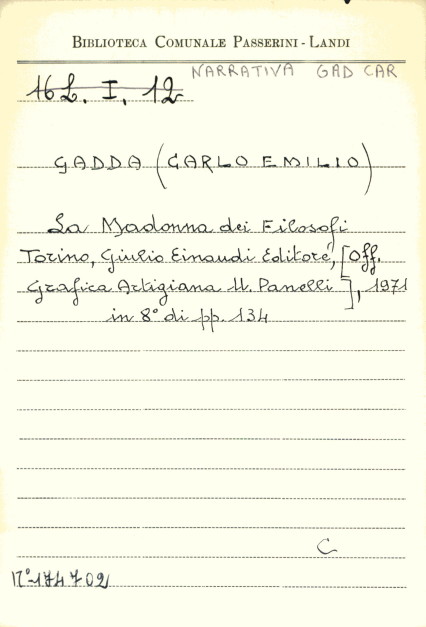 BIBLIOTECA COMUNALE PASSERINI-LANDI
NARRATIVA GAD CAR
16 L. I. 12
GADDA (CARLO EMILIO)
La Madonna dei Filosofi
Torino, Giulio Einaudi Editore, [Off.
Grafica Artigiana U. Panelli], 1971
in 8° di pp. 134
C
N° 174702